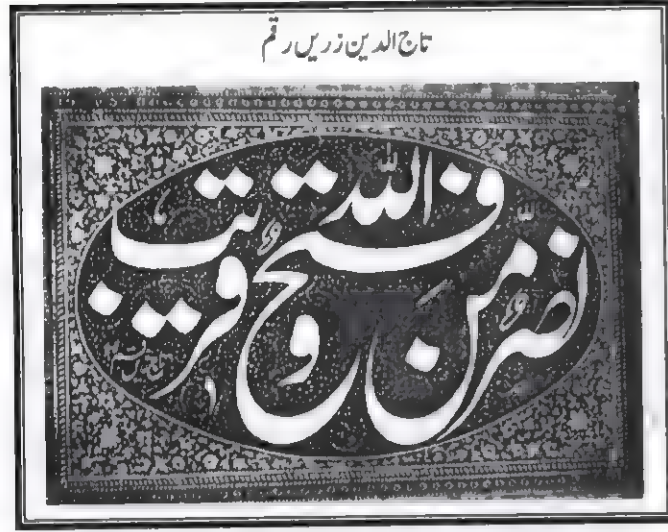 تاج الدین زریں رقم
نصر من الله وفتح قريب